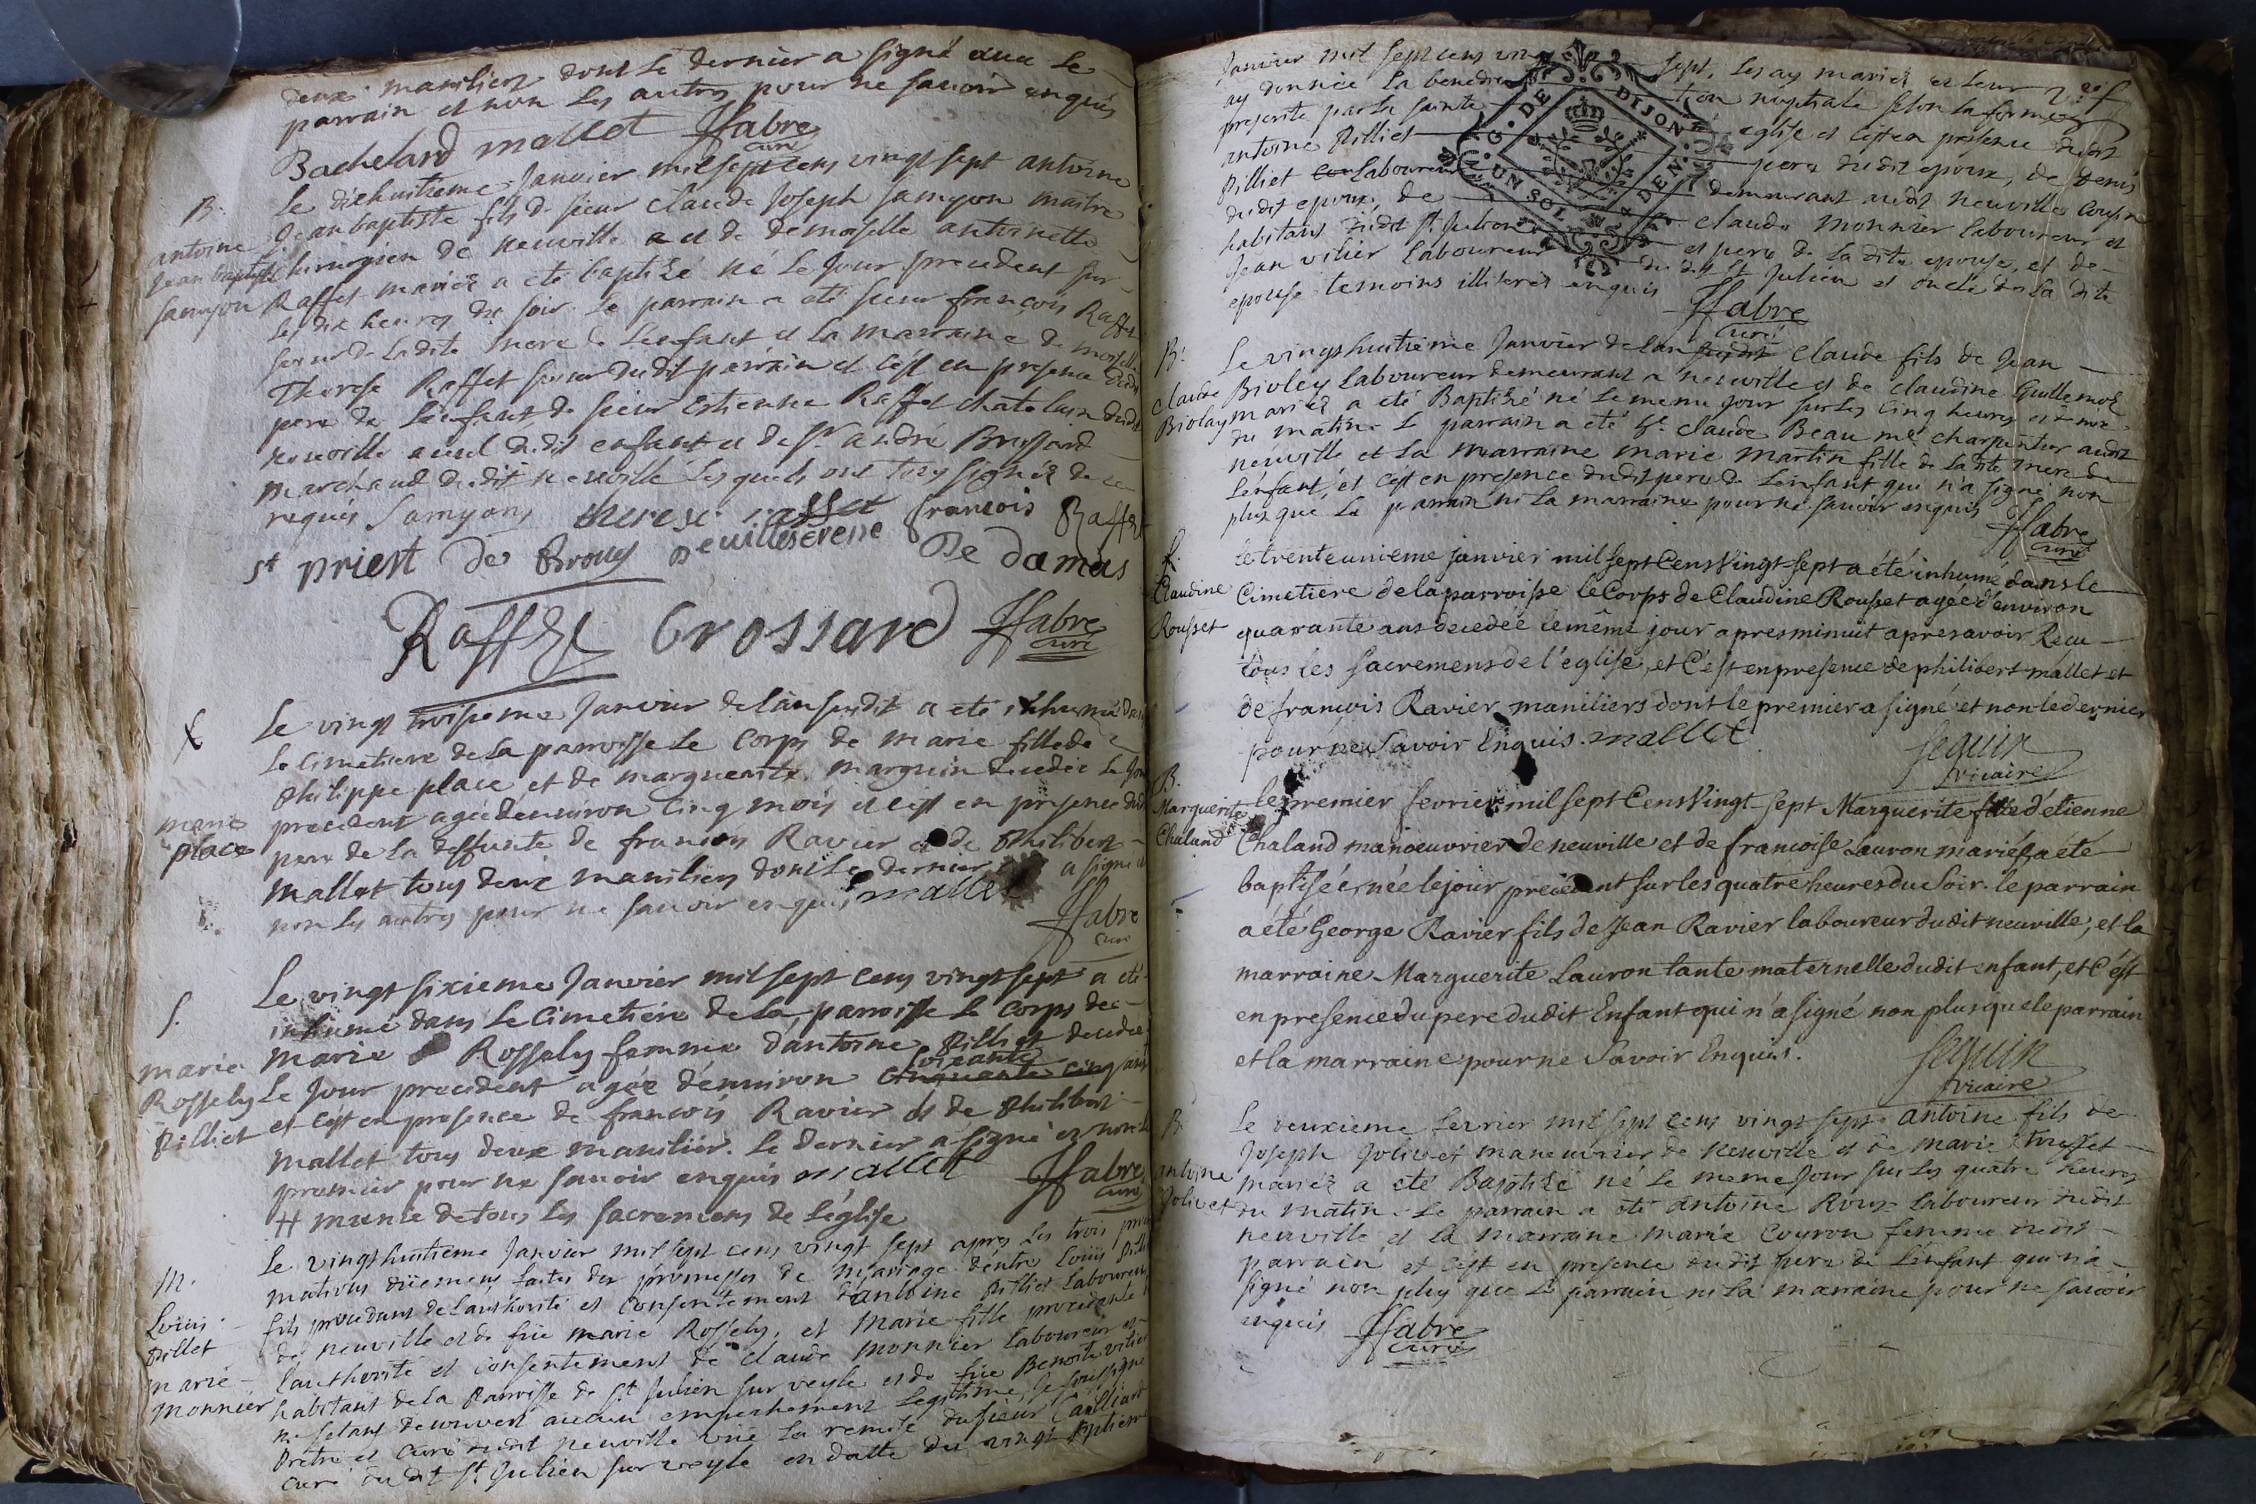 deux maniliers dont le dernier a signé avec le
parrain et non les autres pour ne savoir enquis
Bachelard mallet ffabre
curé
B.
antoine
Jean baptiste
Samyon
le dixhuitieme Janvier mil sept cens vingt sept antoine
Jean baptiste fils de sieur Claude Joseph Samyon maitre
Chirurgien de neuville et de demoiselle antoinette
Raffet mariéz a eté baptizé né le jour precedent sur
les dix heures du soir. le parrain a eté sieur françois Raffet
de la dite mere de l'enfant et la marraine demoiselle
Therese Raffet soeur dudit parrain et c'est en presence dudit
pere de l'enfant, de sieur Estienne Raffet chatelain dudit
neuville ayeul dudit enfant et de sr andré Brossard
marchand dudit neuville lesquels ont tous signéz de ce
requis Samyon therese raffet francois Raffet
st priest de Brouy De damas
Raffet Brossard ffabre
curé
marie
place
Le vingt troisieme Janvier de l'an susdit a eté inhumé dans
le cimetiere de la parroisse le corps de marie fille de
philippe place et de marguerite marguin decedée le jour
precedent agée d'environ cinq mois et c'est en presence dudit
pere de la deffunte de francois Ravier et de philibert
mallet tous deux maniliers dont le dernier a signé et
non les autres pour ne savoir enquis mallet
ffabre
curé
S.
marie
Rossely
pilliet
Le vingt sixieme Janvier mil sept cens vingt sept a eté
inhumé dans le cimetiere de la parroisse le corps de
marie Rossely femme d'antoine pilliet decedée
soixante
le jour precedent agée d'environ cinquante cinq ans
et c'est en presence de francois Ravier et de philibert
mallet tous deux manilier. le dernier a signé et non le
premier pour ne savoir enquis mallet ffabre
curé
# munie de tous les sacremens de l'église
m.
Louis
pillet
marie
monnier
Le vingthuitieme Janvier mil sept cens vingt sept apres les trois
mations düement faites des promesses de mariage d'entre Loüis
fils procedant de l'authorité et consentement d'antoine pilliet laboureur
de neuville et de füe marie Rossely, et marie fille procedante de
l'authorité et consentement de claude monnier laboureur et
habitant de la parroisse de st Julien sur veyle et de füe Benoite vilier
ne s'etant decouvert aucun empechement legitime, je soussigné
pretre et curé dudit neuville vüe la remise du sieur Cailliard
curé dudit st Julien sur veyle en datte du vingt septieme
Janvier mil sept cens vingt sept, les ay mariéz et leur
ay donnée la benediction nuptiale selon la forme
prescrite par la sainte eglise et c'est en presence dudit
antoine pilliet pere dudit epoux, de Denis
pilliet laboureur demeurant audit neuville cousin
dudit epoux, de claude monnier laboureur et
habitant dudit st Julien et pere de la dite epouse, et de
Jean vilier laboureur dudit st Julien et oncle de la dite
epouse temoins illiteréz enquis ffabre
curé
G. DE DIJON
UN SOL DEN.
B.
claude
Biolay
Le vingthuitieme Janvier de l'an susdit claude fils de Jean
Bioley laboureur demeurant a neuville et de claudine Guillemot
mariéz a eté Baptizé né le meme jour sur les cinq heures
du matin. le parrain a eté st. claude Beau me charpentier audit
neuville et la marraine marie martin fille de la dite mere de
l'enfant, et c'est en presence dudit pere de l'enfant qui n'a signé non
plus que le parrain ni la marraine pour ne savoir enquis
ffabre
curé
S.
Claudine
Rousset
le trente unieme janvier mil sept Cens Vingt-sept a été inhumé dans le
Cimetiere de la parroisse le Corps de Claudine Rousset agée d'environ
quarante ans decedée le même jour apres minuit apres avoir Recu
tous les sacremens de l'eglise, et C'est en presence de philibert mallet et
de francois Ravier maniliers dont le premier a signé et non le dernier
pour ne savoir Enquis. mallet
seguin
vicaire
B.
Marguerite
Chaland
le premier fevrier mil sept Cens Vingt-sept Marguerite fille d'étienne
Chaland manoeuvrier de neuville et de francoise Lauron mariés a été
baptisée née le jour précedent sur les quatre heures du soir. le parrain
a été George Ravier fils de Jean Ravier laboureur dudit neuville, et la
marraine Marguerite Lauron tante maternelle dudit enfant, et C'ést
en presence du pere dudit Enfant qui n'a signé non plus que le parrain
et la marraine pour ne Savoir Enquis.
seguin
vicaire
B.
antoine
Jolivet
Le deuxieme fevrier mil sept cens vingt sept antoine fils de
Joseph Jolivet maneuvrier de neuville et de marie
mariéz a eté Baptizé né le meme Jour sur les quatre heures
du matin. Le parrain a eté antoine Roux laboureur dudit
neuville et la marraine marie couron femme dudit
parrain et c'est en presence dudit pere de l'enfant qui n'a
signé non plus que le parrain ni la marraine pour ne savoir
enquis ffabre
curé